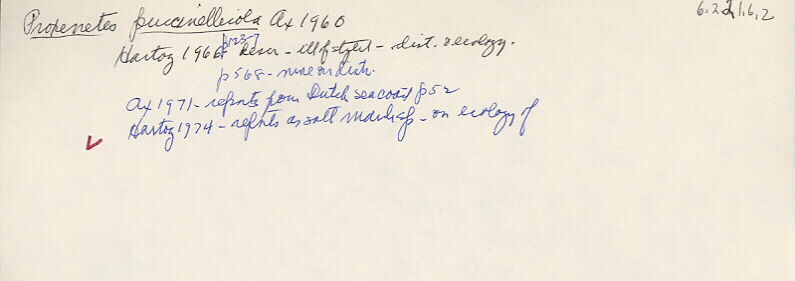 Proxenetes puccinellicola Ax 1960
6.2.21.6.2
Hartog 1966 p123-7 Descr - ill of stylet - dist. & ecology.
p568 - more on distr.
Ax 1971 - reports from Dutch seacoast p52
Hartog 1974 - reports as salt marsh sp - on ecology of